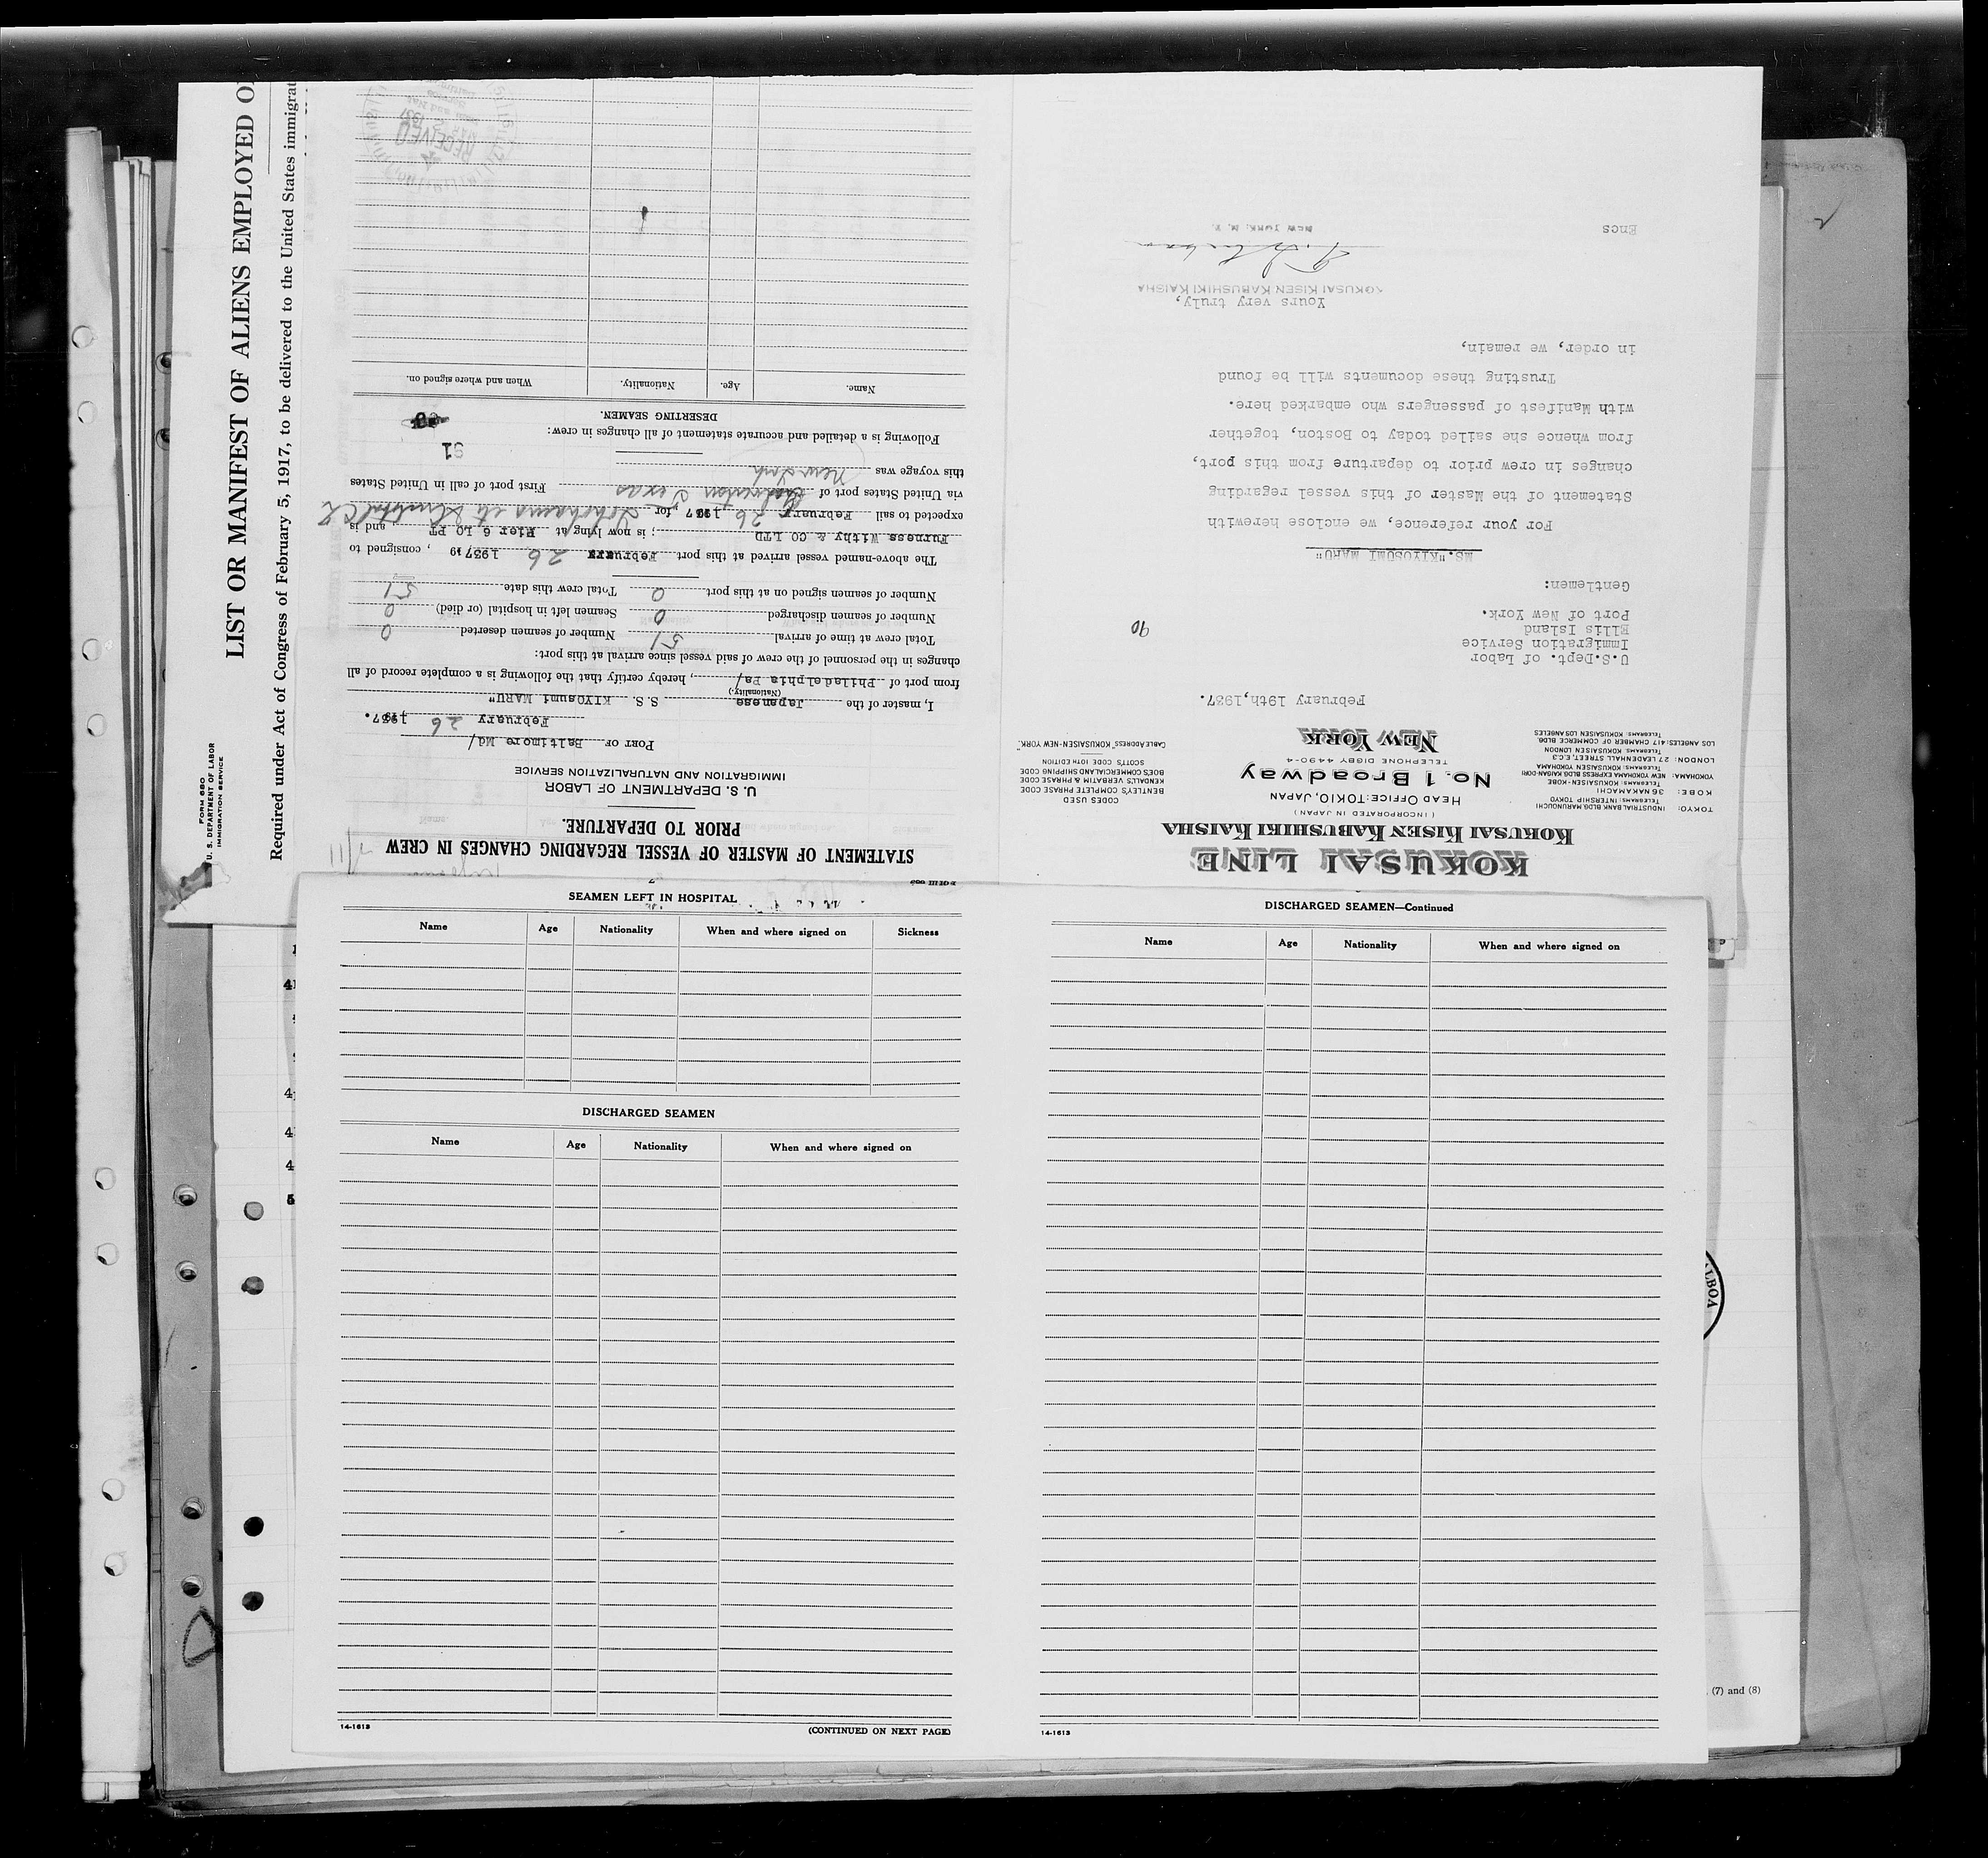 LIST OR MANIFEST OF ALIENS EMPLOYED O
Required under Act of Congress of February 5, 1917, to be delivered to the United States immigrat
FORM 680
U. S. DEPARTMENT OF LABOR
IMMIGRATION SERVICE
STATEMENT OF MASTER OF VESSEL REGARDING CHANGES IN CREW
PRIOR TO DEPARTURE.
U. S. DEPARTMENT OF LABOR
IMMIGRATION AND NATURALIZATION SERVICE
PORT OF Baltimore Md/
February 26 1937.
I, master of the Japanese S.S. KIYOsumi MARU"
(Nationality.)
from port of Philadelphia Pa/, hereby certify that the following is a complete record of all
changes in the personnel of the crew of said vessel since arrival at this port:
Total crew at time of arrival 51 Number of seamen deserted 0
Number of seamen discharged 0 Seamen left in hospital (or died) 0
Number of seamen signed on at this port 0 Total crew this date 51
The above-named vessel arrived at this port February 26 1937 19 , consigned to
Furness Withy & CO LTD ; is now lying at Pier 6 LO PT and is
expected to sail February 26 1937, for Yokohama via Cristobal C Z
via United States port of Galveston Texas First port of call in United States
this voyage was New York
91
Following is a detailed and accurate statement of all changes in crew:
DESERTING SEAMEN.
Name. Age. Nationality. When and where signed on.
RECEIVED
KOKUSAI LINE
KOKUSAI KISEN KABUSHIKI KAISHA
(INCORPORATED IN JAPAN)
HEAD OFFICE: TOKIO, JAPAN
No. 1 Broadway
TELEPHONE DIGBY 4490-4
NEW YORK
TOKYO: INDUSTRIAL BANK BLDG, MARUNOUCHI
TELEGRAMS: INTERSHIP TOKYO
KOBE: 36 NAKAMACHI
TELEGRAMS: KOKUSAISEN-KOBE
YOKOHAMA: NEW YOKOHAMA EXPRESS BLDG. KAIGAN-DORI
TELEGRAMS: KOKUSAISEN YOKOHAMA
LONDON: 27 LEADENHALL STREET, E.C.3
TELEGRAMS: KOKUSAISEN LONDON
LOS ANGELES: 417 CHAMBER OF COMMERCE BLDG.
TELEGRAMS: KOKUSAISEN LOS ANGELES
CODES USED
BENTLEY'S COMPLETE PHRASE CODE
KENDALL'S VERBATIM & PHRASE CODE
BOE'S COMMERCIAL AND SHIPPING CODE
SCOTT'S CODE 10TH EDITION
CABLE ADDRESS "KOKUSAISEN-NEW YORK"
February 19th,1937.
U.S.Dept. of Labor
Immigration Service
Ellis Island
Port of New York.
90
Gentlemen:
MS."KIYOSUMI MARU"
For your reference, we enclose herewith
Statement of the Master of this vessel regarding
changes in crew prior to departure from this port,
from whence she sailed today to Boston, together
with Manifest of passengers who embarked here.
Trusting these documents will be found
in order, we remain,
Yours very truly,
KOKUSAI KISEN KABUSHIKI KAISHA
NEW YORK, N. Y.
Encs
SEAMEN LEFT IN HOSPITAL
Name Age Nationality When and where signed on Sickness
DISCHARGED SEAMEN
Name Age Nationality When and where signed on
14-1613
(CONTINUED ON NEXT PAGE)
DISCHARGED SEAMEN—Continued
Name Age Nationality When and where signed on
14-1613
(7) and (8)
LBOA